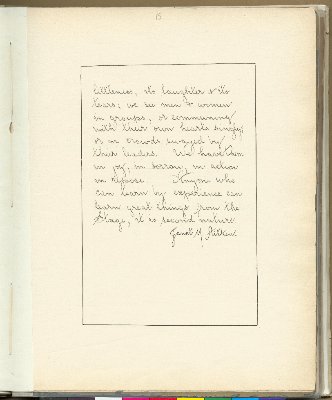 15
littleness, its laughter & its
tears; we see men & women
in groups, or communing
with their own hearts singly
or in crowds swayed by
their leaders. We have them
in joy, in sorrow, in action
in repose. Anyone who
can learn by experience can
learn great things from the
Stage, it is second nature.
Janet H.